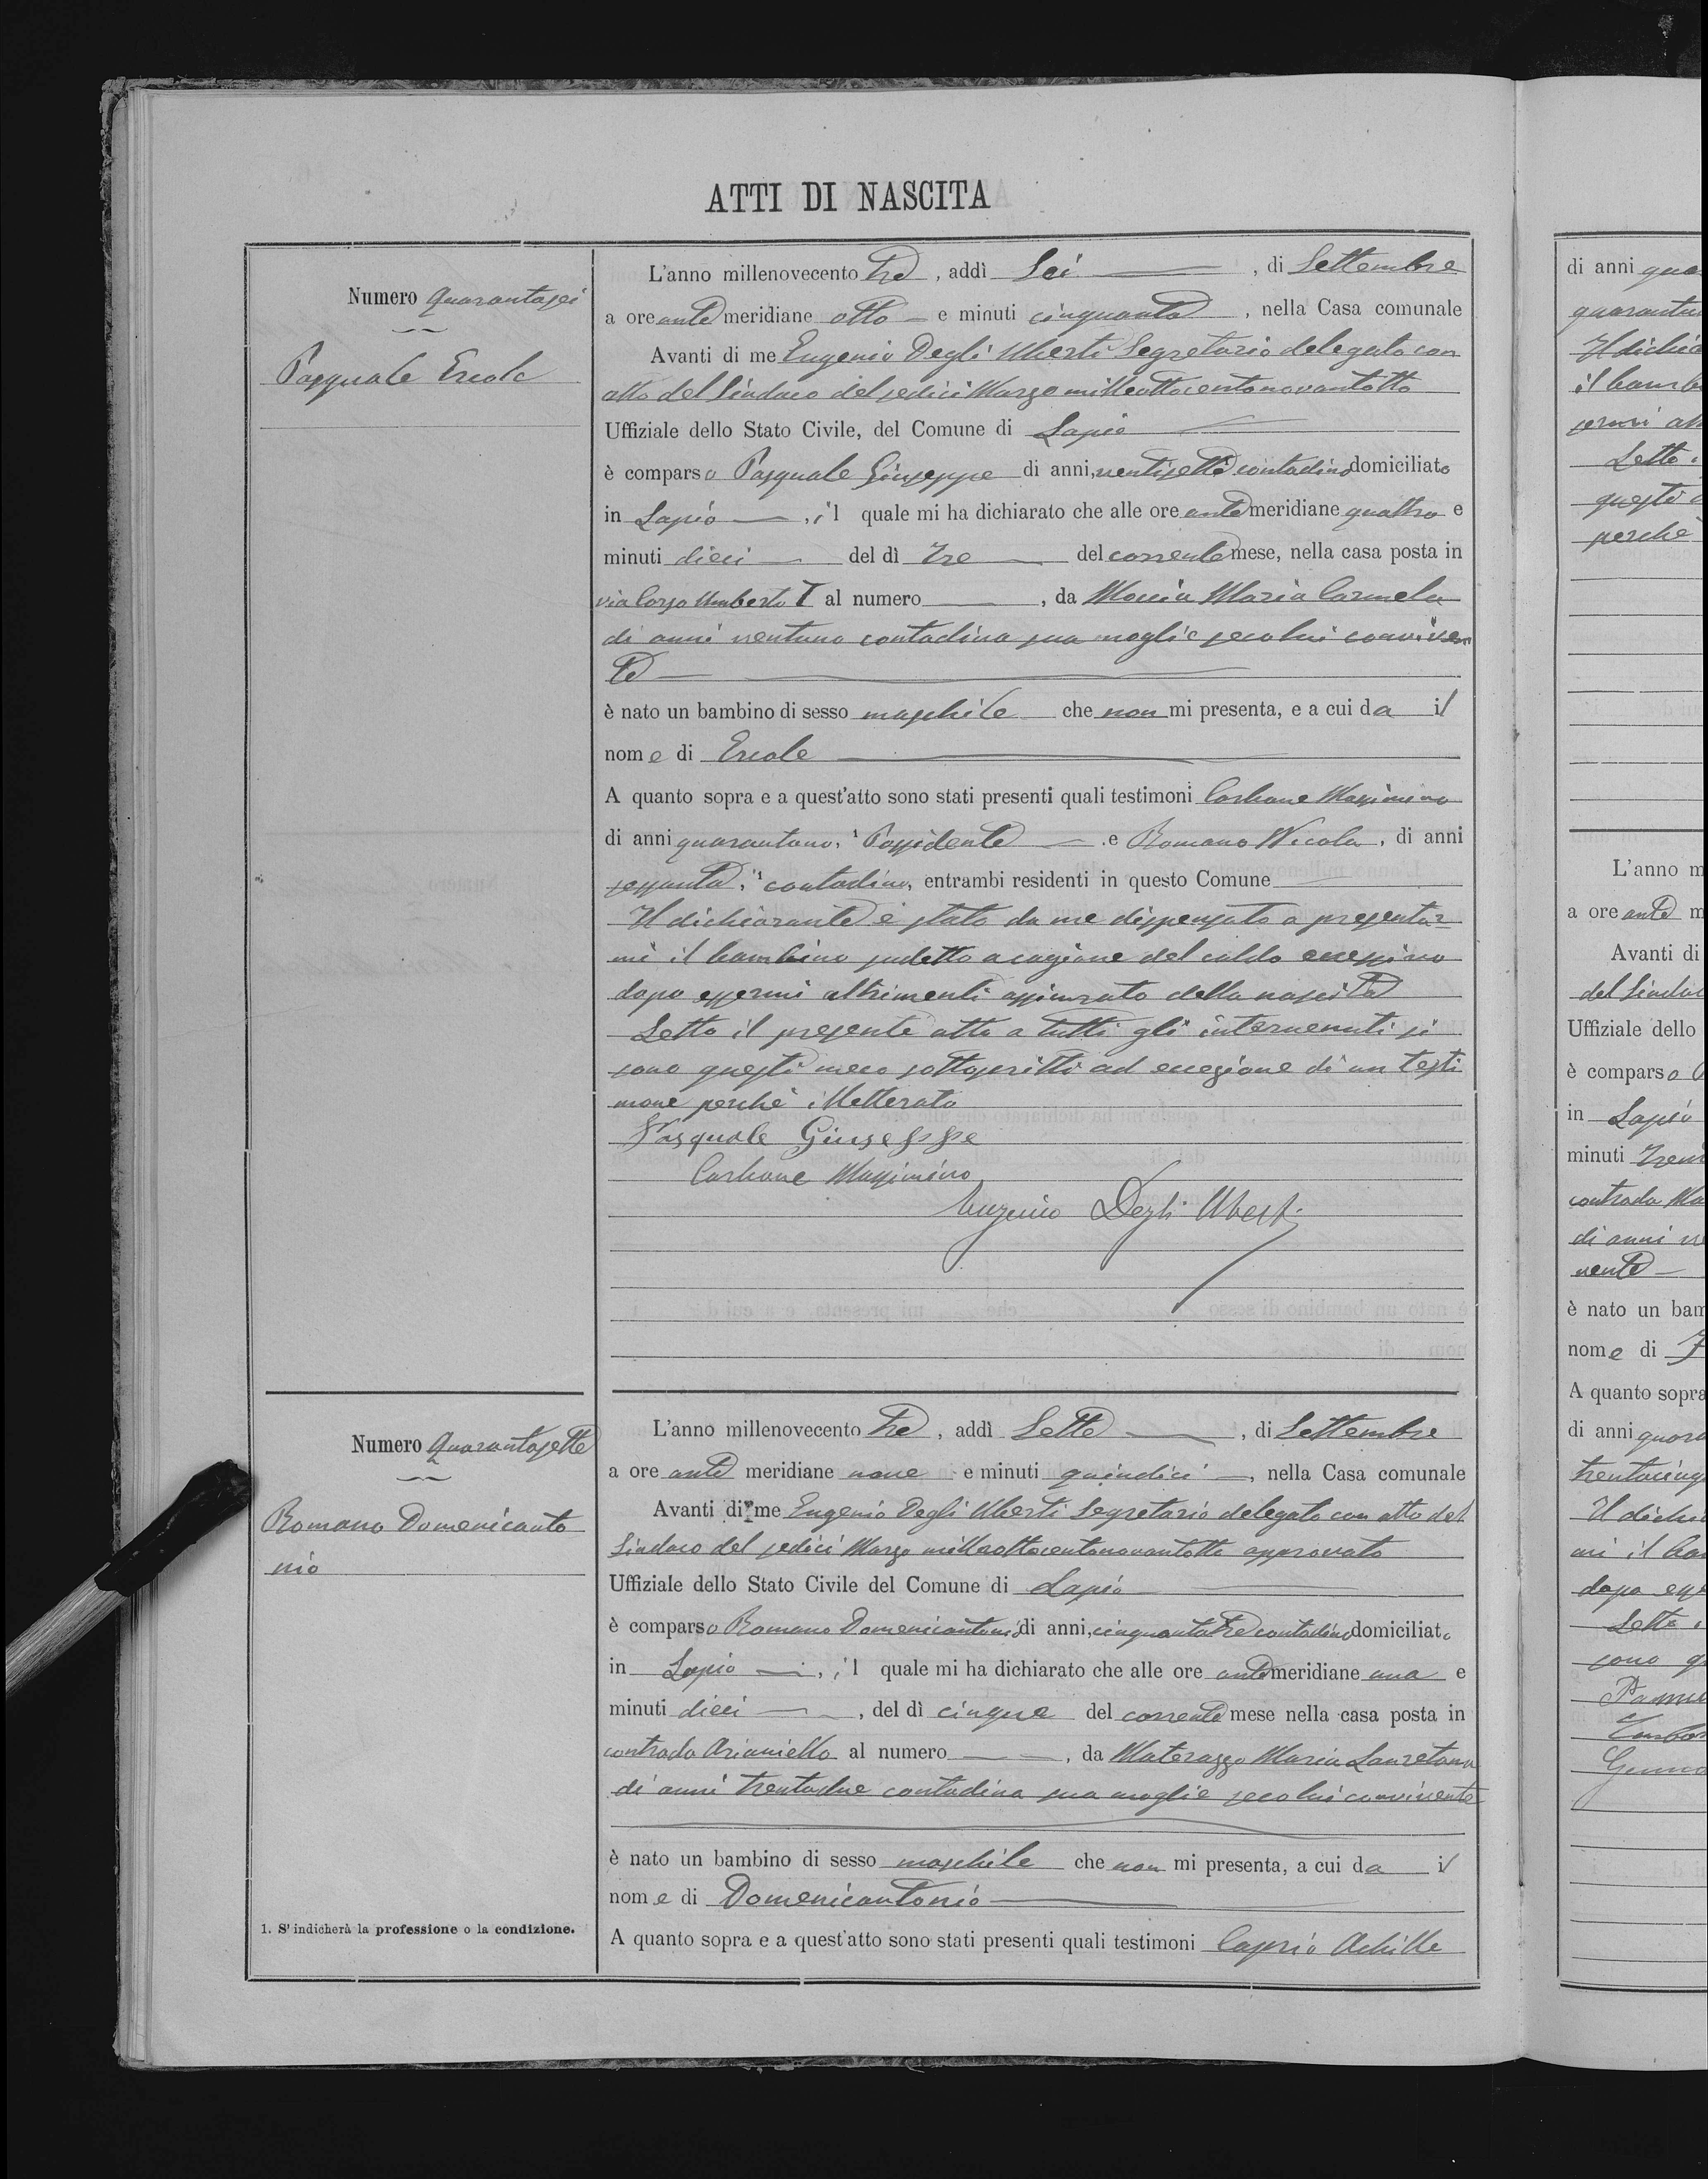 ATTI DI NASCITA
Numero Quarantasei
Pasquale Ercole
L'anno millenovecento tre, addì Sei, di Settembre
a ore ante meridiane otto e minuti cinquanta, nella Casa comunale
Avanti di me Eugenio Degli Uberti Segretario delegato con
atto del Sindaco del sedici Marzo milleottocentonovantotto
Uffiziale dello Stato Civile, del Comune di Lapio
è comparso Pasquale Giuseppe di anni, ventisette contadino domiciliato
in Lapio, il quale mi ha dichiarato che alle ore antemeridiane quattro e
minuti dieci del dì tre del corrente mese, nella casa posta in
via Corso Umberto I al numero, da Moccia Maria Carmela
di anni ventuno contadina sua moglie seco lui conviven
te
è nato un bambino di sesso maschile che non mi presenta, e a cui da il
nome di Ercole
A quanto sopra e a quest'atto sono stati presenti quali testimoni Carbone Massimino
di anni quarantuno, 1 Possidente e Romano Nicola, di anni
sessanta, 1 contadino, entrambi residenti in questo Comune
Il dichiarante è stato da me dispensato a presentar=
mi il bambino sudetto a cagione del caldo eccessivo
dopo essermi altrimenti assicurato della nascita
Letto il presente atto a tutti gli intervenuti si
sono questi meco sottoscritti ad eccezione di un testi
mone perchè illetterato
Pasquale Giuseppe
Carbone Massimino
Eugenio Degli Uberti
Numero Quarantasette
Romano Domenicanto
nio
L'anno millenovecento tre, addì Sette, di Settembre
a ore ante meridiane nove e minuti quindici, nella Casa comunale
Avanti di me Eugenio Degli Uberti Segretario delegato con atto del
Sindaco del sedici Marzo milleottocentonovantotto approvato
Uffiziale dello Stato Civile del Comune di Lapio
è comparso Romano Domenicantonio di anni, cinquantatre contadino domiciliato
in Lapio, il quale mi ha dichiarato che alle ore antemeridiane una e
minuti dieci, del dì cinque del corrente mese nella casa posta in
contrada Arianiello al numero, da Materazzo Maria Lauretana
di anni trentadue contadina sua moglie seco lui convivente
è nato un bambino di sesso maschile che non mi presenta, a cui da il
nome di Domenicantonio
A quanto sopra e a quest'atto sono stati presenti quali testimoni Caprio Achille
1. S'indicherà la professione o la condizione.
di anni
Il
il
Letto
questi
perchè
L'anno
a ore ante
Avanti di
del
Uffiziale dello
è comparso
in Lapio
minuti
contrada
di anni
vente
è nato un
nome di
A quanto sopra
di anni
Il
mi il
dopo
Letto
sono